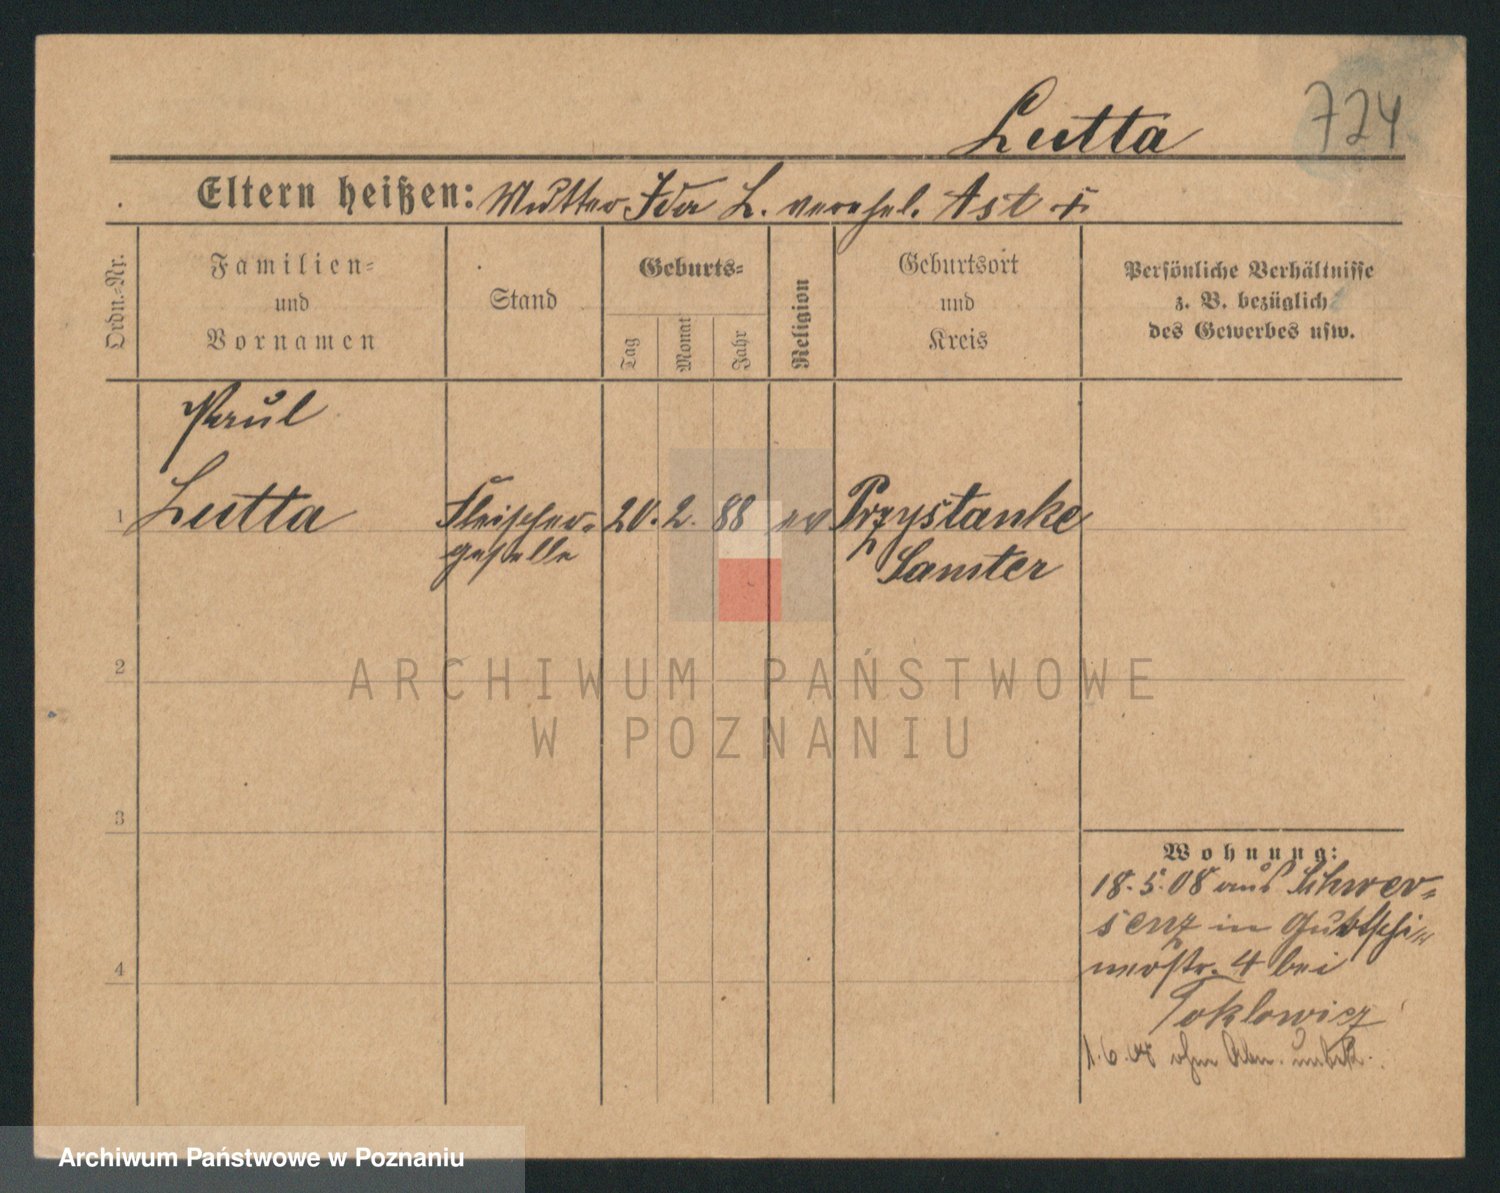 Lutta
724
Eltern heißen: Mutter Ida L. verehel. Ast +
Ordn.-Nr.
Familien-
und
Vornamen
Stand
Geburts-
Tag
Monat
Jahr
Religion
Geburtsort
und
Kreis
Persönliche Verhältnisse
z. B. bezüglich
des Gewerbes usw.
Paul
1 Lutta Fleischer- 20. 2. 88 ev Przystanke
geselle Samter
2
ARCHIWUM PAŃSTWOWE
W POZNANIU
3
Wohnung:
18.5.08 aus Schwer-
senz in
4 str. 4 bei
Toklowicz
1.6.08 ohne Abm.
Archiwum Państwowe w Poznaniu